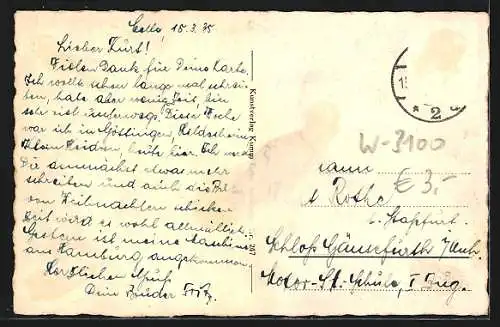 Celle, 15.3.35
Lieber Kurt!
Vielen Dank für Deine Karte.
Ich wollte schon lange mal schrei-
ben, habe aber wenig Zeit, bin
sehr viel unterwegs. Diese Woche
war ich in Göttingen, Hildesheim,
heute hier. Ich
Dir demnächst etwas mehr
schreiben und auch die
von Weihnachten schicken.
Zeit wird es wohl allmählich.
Gestern ist meine
aus Hamburg angekommen.
Herzlichen Gruß
Dein Bruder Fritz.
Kunstverlag
267
2
W-3100
€ 3,-
mann
Rothe
b. Staßfurt
Schloß Gänsefurth / Anh.
Motor-St.-Schule, I. Zug.